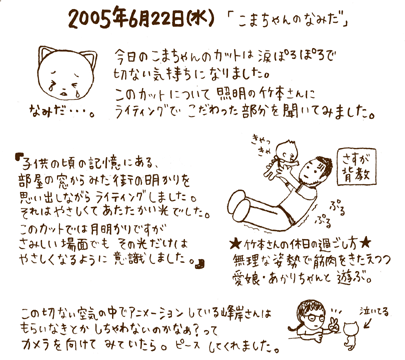 2005年6月22日(水) 「こまちゃんのなみだ」
今日のこまちゃんのカットは涙ぽろぽろで
切ない気持ちになりました。
このカットについて照明の竹本さんに
ライティングでこだわった部分を聞いてみました。
なみだ・・・。
『子供の頃の記憶にある、
部屋の窓からみた街の明かりを
思い出しながらライティングしました。
それはやさしくてあたたかい光でした。
このカットでは月明かりですが
さみしい場面でもその光だけは
やさしくなるように意識しました。』
きゃっ
きゃ
さすが
背教
ぷる
ぷる
★竹本さんの休日の過ごし方★
無理な姿勢で筋肉をきたえつつ
愛娘・あかりちゃんと遊ぶ。
この切ない空気の中でアニメーションしている峰岸さんは
もらいなきとかしちゃわないのかなぁ?って
カメラを向けてみていたら。ピースしてくれました。
泣いてる